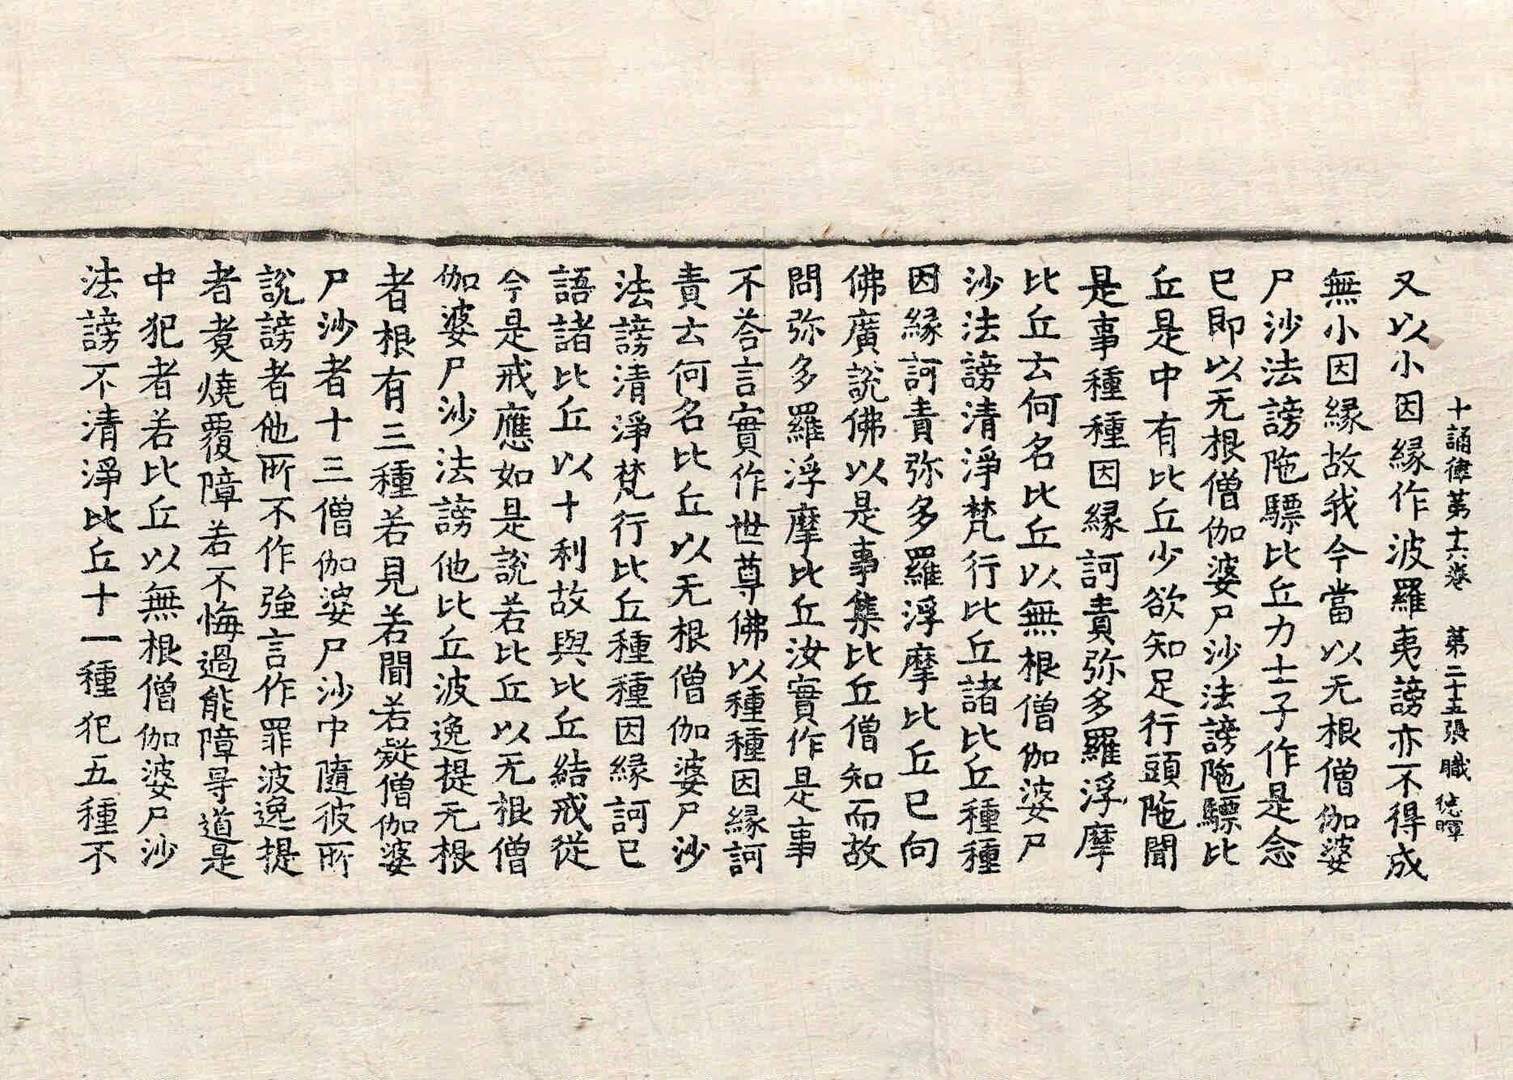 十誦律第十六卷 第二十五張 職 德暉
又以小因緣作波羅夷謗亦不得成
無小因緣故我今當以无根僧伽婆
尸沙法謗陁驃比丘力士子作是念
已即以无根僧伽婆尸沙法謗陁驃比
丘是中有比丘少欲知足行頭陁聞
是事種種因緣訶責弥多羅浮摩
比丘云何名比丘以無根僧伽婆尸
沙法謗清淨梵行比丘諸比丘種種
因緣訶責弥多羅浮摩比丘已向
佛廣說佛以是事集比丘僧知而故
問弥多羅浮摩比丘汝實作是事
不荅言實作世尊佛以種種因緣訶
責云何名比丘以无根僧伽婆尸沙
法謗清淨梵行比丘種種因緣訶已
語諸比丘以十利故與比丘結戒從
今是戒應如是說若比丘以无根僧
伽婆尸沙法謗他比丘波逸提无根
者根有三種若見若聞若疑僧伽婆
尸沙者十三僧伽婆尸沙中隨彼所
說謗者他所不作強言作罪波逸提
者煑燒覆障若不悔過能障㝵道是
中犯者若比丘以無根僧伽婆尸沙
法謗不清淨比丘十一種犯五種不